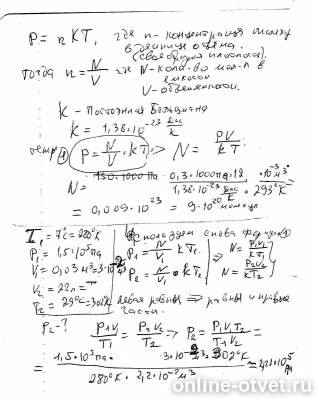 P = n KT, где n - концентрация молекул
в единице объема.
(своего рода плотность).
тогда n = N/V где N - кол-во мол-л в
емкости
V - объем емкости.
K - Постоянная Больцмана
K = 1,38·10⁻²³ Дж/К
P = N/V · KT ⇒ N = PV/KT
N = 130·1000 Па · 0,3·1000 · 12 · 10⁻³ м³ / 1,38·10⁻²³ Дж/К · 293°К
= 0,009·10²³ = 9·10²⁰ молекул
T₁ = 7°C = 280°K
P₁ = 1,5·10⁵ Па
V₁ = 0,03 м³ = 3·10⁻²
V₂ = 22 л =
T₂ = 29°C = 302°K
P₂ - ?
Используем снова формулу
P₁ = N/V₁ KT₁
P₂ = N/V₂ · KT₂
⇒ N = P₁V₁/KT₁
N = P₂V₂/KT₂
левая равны ⇒ равны и правые
части.
P₁V₁/T₁ = P₂V₂/T₂ ⇒ P₂ = P₁V₁T₂/T₁V₂ =
= 1,5·10⁵ Па · 3·10⁻² м³ · 302°K / 280°K · 2,2·10⁻² м³ = 2,21·10⁵ Па
online-otvet.ru